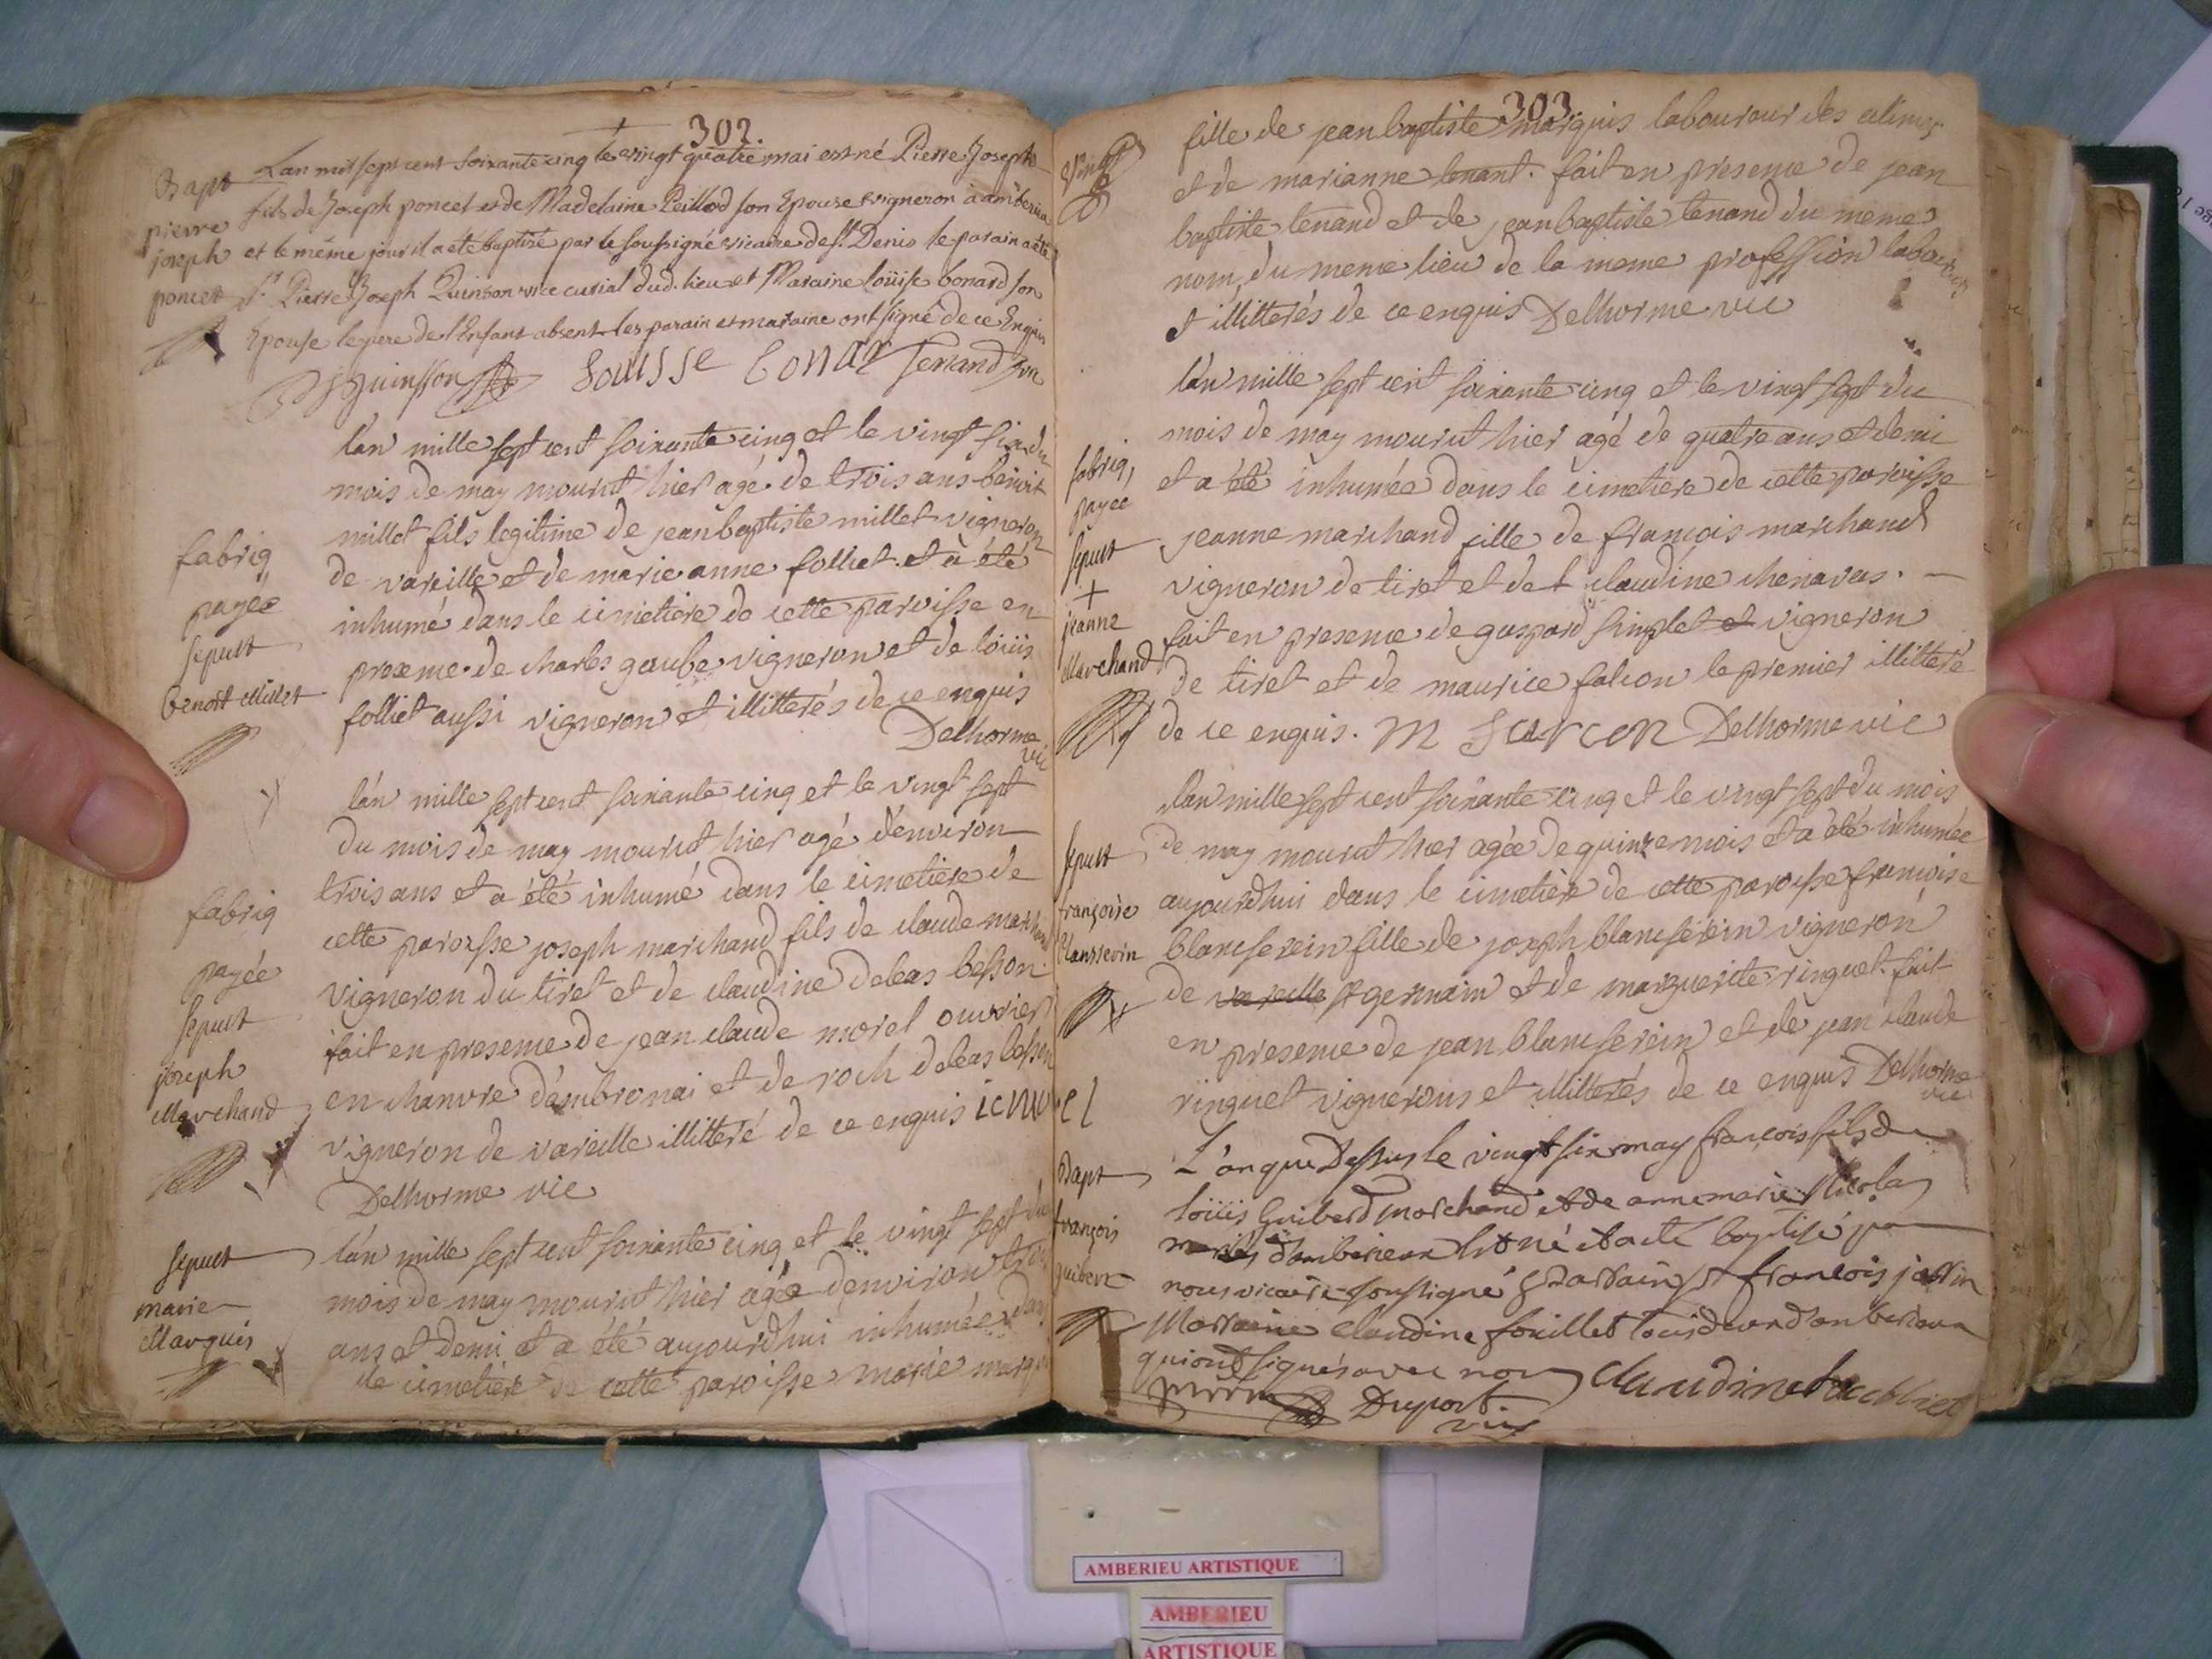 302.
Bapt
pierre
joseph
poncet
Lan mil sept cent soixante cinq le vingt quatre mai est né Pierre Joseph
fils de Joseph poncet et de Madelaine Peillod son Epouse vigneron à amberieu
et le même jour il a eté baptisé par le soussigné vicaire de st. Denis le parain a été
sr. Pierre Joseph Quinson vice curial dud. lieu et Maraine loüise bonard son
Epouse le pere de l'Enfant absent les parain et maraine ont signé de ce Enquis
Quinsson Louisse bonar
fabriq
payée
sepult
benoit Millet
l'an mille sept cent soixante cinq et le vingt six du
mois de may mourut hier agé de trois ans benoit
millet fils legitime de jean baptiste millet vigneron
de vareille et de marie anne folliet. et a été
inhumé dans le cimetiere de cette paroisse en
presence de charles gaube vigneron et de loüis
folliet aussi vigneron et illitterés de ce enquis
Delhorme
vic
fabriq
payée
sepult
joseph
Marchand
l'an mille sept cent soixante cinq et le vingt sept
du mois de may mourut hier agé d'environ
trois ans et a été inhumé dans le cimetiere de
cette paroisse joseph marchand fils de claude marchand
vigneron du tiret et de claudine debeas besson.
fait en presence de jean claude morel ouvrier
en chanvre d'ambronai et de roch debeas besson
vigneron de vareille illitteré de ce enquis
Delhorme vic
sepult
marie
Marquis
l'an mille sept cent soixante cinq et le vingt sept du
mois de may mourut hier agée d'environ trois
ans et demi et a été aujourdhui inhumée dans
le cimetiere de cette paroisse marie marquis
303
fille de jean baptiste marquis laboureur des
et de marianne tenant. fait en presence de jean
baptiste tenand et de jean baptiste tenand du meme
nom, du meme lieu de la meme profession laboureurs
et illitterés de ce enquis Delhorme vic
fabriq,
payée
sepult
+
jeanne
Marchand
l'an mille sept cent soixante cinq et le vingt sept du
mois de may mourut hier agé de quatre ans et demi
et a été inhumée dans le cimetiere de cette paroisse
jeanne marchand fille de francois marchand
vigneron de tiret et de claudine chenavas.
fait en presence de gaspard simplet et vigneron
de tiret et de maurice falcon le premier illitteré
de ce enquis. M falcon Delhorme vic
sepult
françoise
Blanserin
l'an mille sept cent soixante cinq et le vingt sept du mois
de may mourut hier agée de quinze mois et a été inhumée
aujourdhui dans le cimetiere de cette paroisse francoise
blancserein fille de joseph blancserein vigneron
de vareille st germain et de marguerite ringuet. fait
en presence de jean blancserein et de jean claude
ringuet vignerons et illitterés de ce enquis Delhorme
vic
Bapt
françois
guibert
L'an que Dessus le vingt six may francois fils de
loüis Guiberd marchand et de anne marie Nicolas
mariés d'amberieux est né et a eté baptisé par
nous vicaire soussigné parrain sr francois
Marraine claudine foüillet tous deux d'amberieux
qui ont signés avec nous
Duport
vic
AMBERIEU ARTISTIQUE
AMBERIEU
ARTISTIQUE